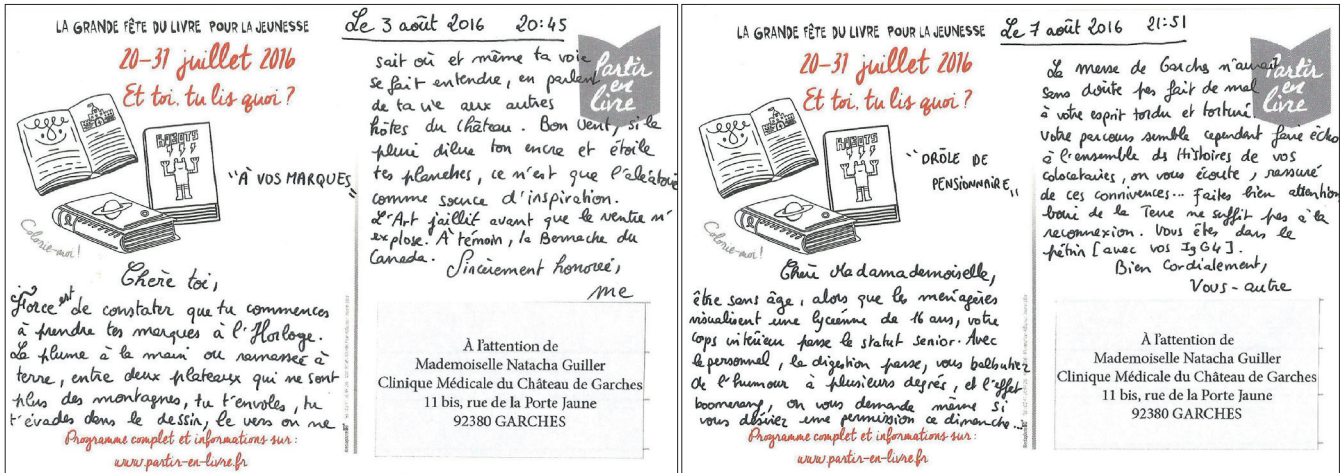 LA GRANDE FÊTE DU LIVRE POUR LA JEUNESSE
20-31 juillet 2016
Et toi, tu lis quoi ?
ROBOTS
"À VOS MARQUES"
Colorie-moi !
Chère toi,
Force est de constater que tu commences
à prendre tes marques à l'Horloge.
La plume à la main ou ramassée à
terre, entre deux plateaux qui ne sont
plus des montagnes, tu t'envoles, tu
t'évades dans le dessin, le vers on ne
Programme complet et informations sur :
www.partir-en-livre.fr
Le 3 août 2016 20:45
Partir en livre
sait où et même ta voie
se fait entendre, en parlent
de ta vie aux autres
hôtes du Château. Bon vent, si la
pluie dilue ton encre et étoile
tes planches, ce n'est que l'aléatoire
comme source d'inspiration.
L'Art jaillit avant que le ventre n'
explose. À témoin, la Bernache du
Canada. Sincèrement honorée,
me
À l'attention de
Mademoiselle Natacha Guiller
Clinique Médicale du Château de Garches
11 bis, rue de la Porte Jaune
92380 GARCHES
LA GRANDE FÊTE DU LIVRE POUR LA JEUNESSE
20-31 juillet 2016
Et toi, tu lis quoi ?
ROBOTS
"DRÔLE DE
PENSIONNAIRE"
Colorie-moi !
Chère Madamademoiselle,
être sans âge, alors que les ménagères
visualisent une lycéenne de 16 ans, votre
corps intérieur passe le statut senior. Avec
le personnel, la digestion passe, vous balbutiez
de l'humour à plusieurs degrés, et l'effet
boomerang, on vous demande même si
vous désirez une permission ce dimanche...
Programme complet et informations sur :
www.partir-en-livre.fr
Le 7 août 2016 21:51
Partir en livre
La messe de Garches n'aurait
sans doute pas fait de mal
à votre esprit tordu et torturé.
Votre parcours semble cependant faire écho
à l'ensemble des Histoires de vos
colocataires, on vous écoute, rassuré
de ces connivences... Faites bien attention
boire de la Terre ne suffit pas à la
reconnexion. Vous êtes dans le
pétrin [avec vos IgG4].
Bien Cordialement,
Vous-autre
À l'attention de
Mademoiselle Natacha Guiller
Clinique Médicale du Château de Garches
11 bis, rue de la Porte Jaune
92380 GARCHES